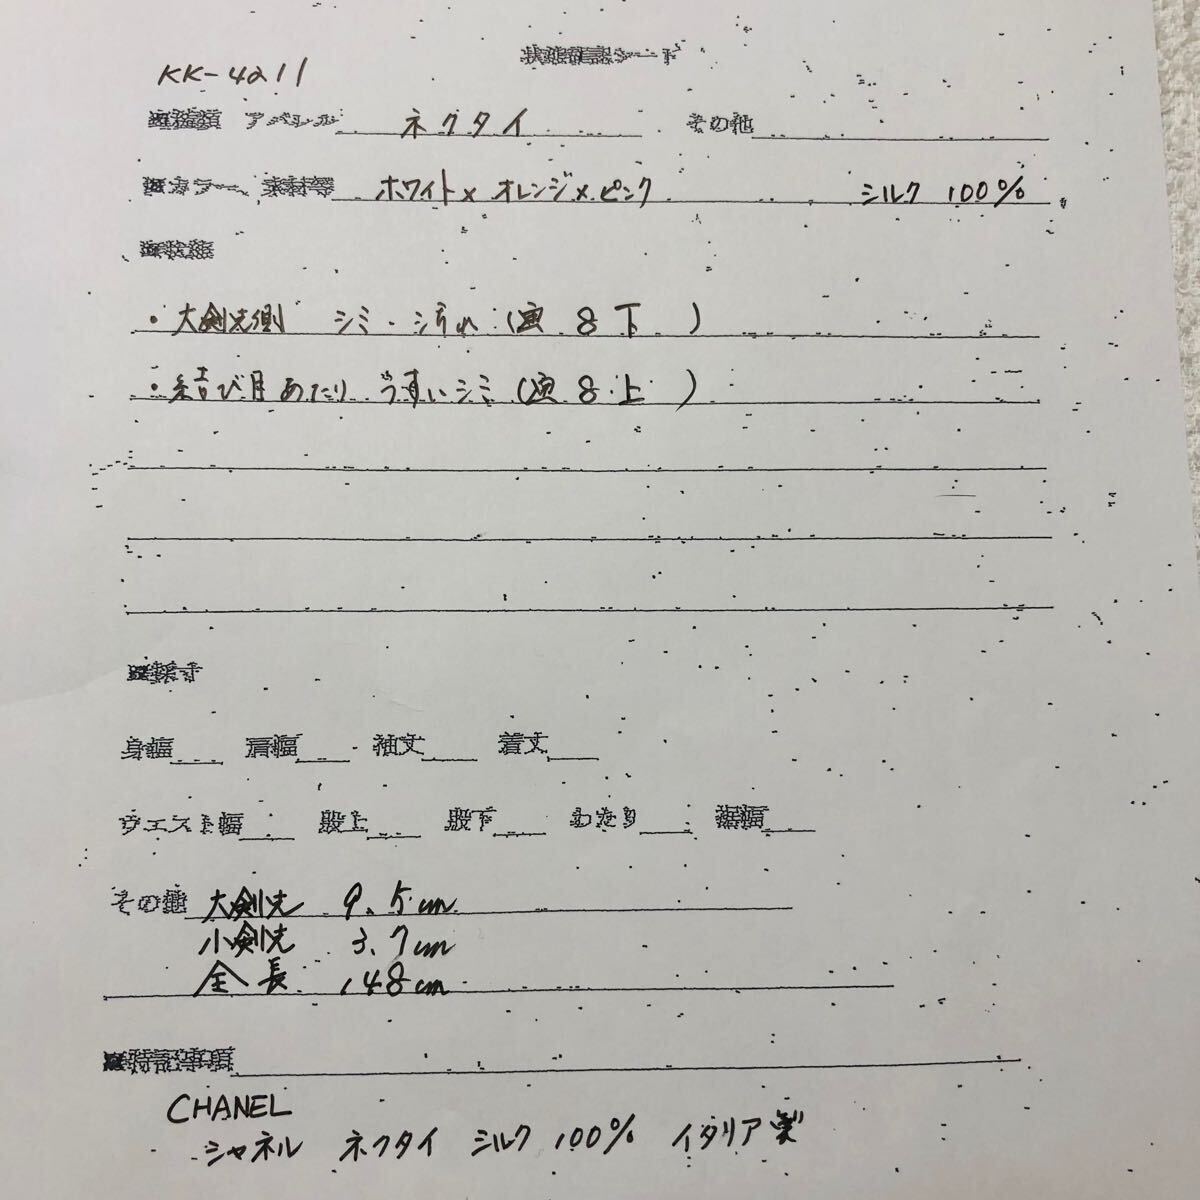 状態確認シート
KK-4211
種類 アパレル ネクタイ その他
カラー、素材等 ホワイト×オレンジ×ピンク シルク 100%
状態
・大剣先側 シミ・汚れ(画 8 下 )
・結び目あたり うすいシミ(画 8 上 )
採寸
身幅 肩幅 袖丈 着丈
ウエスト幅 股上 股下 わたり 裾幅
その他 大剣先 9.5cm
小剣先 3.7cm
全長 148cm
特記事項
CHANEL
シャネル ネクタイ シルク 100% イタリア製